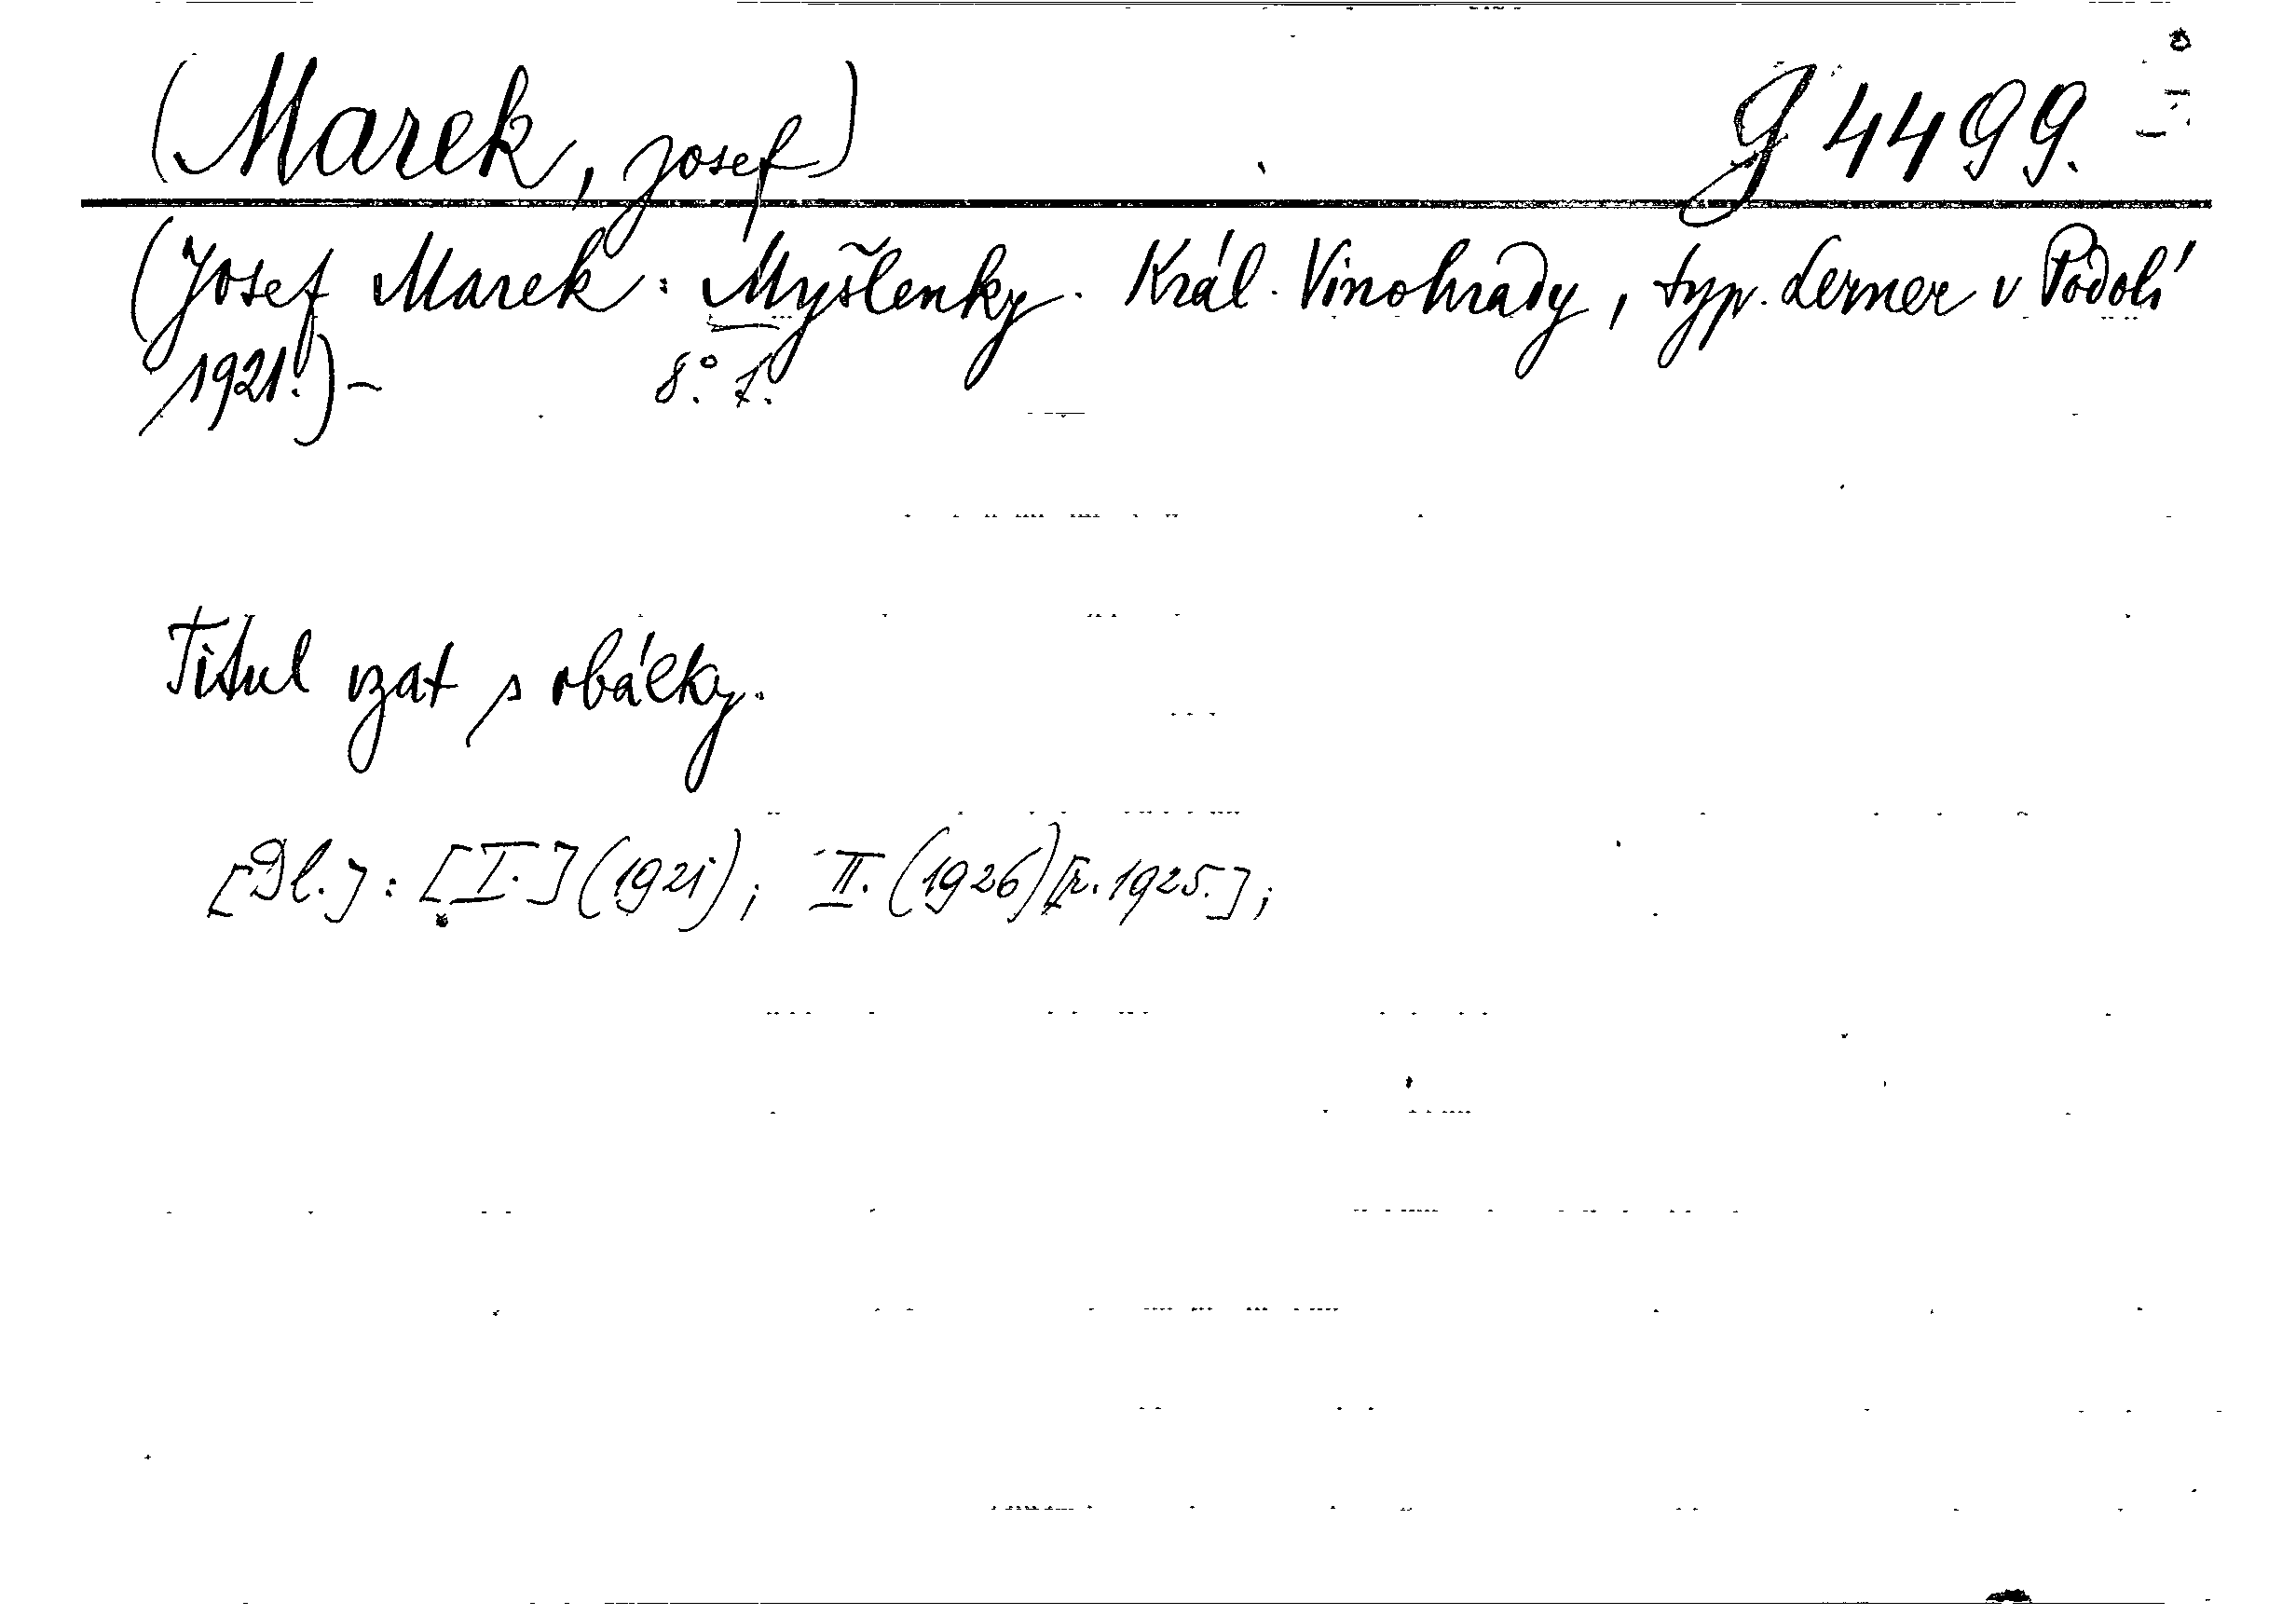 (Marek, Josef) g 4499.
(Josef Marek: Myšlenky. Král. Vinohrady, typ. Lerner v Podolí
1921.) – 8°. 7.
Titul vzat s obálky.
[Dl.]: [I.] (1921); II. (1926) [r. 1925.];